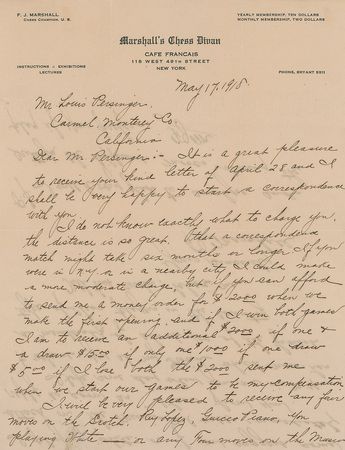 F. J. MARSHALL
CHESS CHAMPION, U. S.
YEARLY MEMBERSHIP, TEN DOLLARS
MONTHLY MEMBERSHIP, TWO DOLLARS
Marshall's Chess Divan
CAFE FRANCAIS
118 WEST 49TH STREET
NEW YORK
INSTRUCTIONS - EXHIBITIONS
LECTURES
PHONE, BRYANT 5911
May 17, 1918.
Mr Louis Persinger,
Carmel, Monterey Co
California
Dear Mr Persinger:- It is a great pleasure
to receive your kind letter of April 28 and I
shall be very happy to start a correspondence
with you.
I do not know exactly what to charge you,
the distance is so great, that a correspondence
match might take six months or longer. If you
were in N.Y. or in a nearby city I could make
a more moderate charge, but if you can afford
to send me a money order for $20.00 when we
make the first opening, and if I win both games
I am to receive an additional $20.00, if one &
a draw $15.00 if only one 10.00 if one draw
$5.00 if I lose both the $20.00 sent me
when we start our games to be my compensation
I will be very pleased to receive any fair
moves on the Scotch, Ruy Lopez, Guioco Piano, you
playing White — or any four moves on the